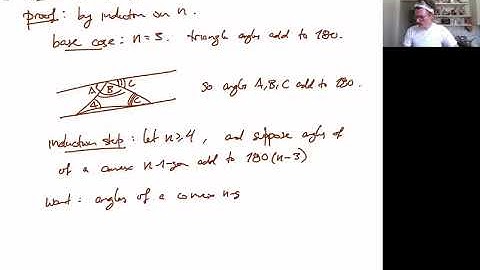 proof: by induction on n.
base case: n=3. triangle angles add to 180.
A B C
A C
so angles A, B, C add to 180.
induction step: let n≥4, and suppose angles of
of a convex n-1-gon add to 180(n-3)
Want: angles of a convex n-g